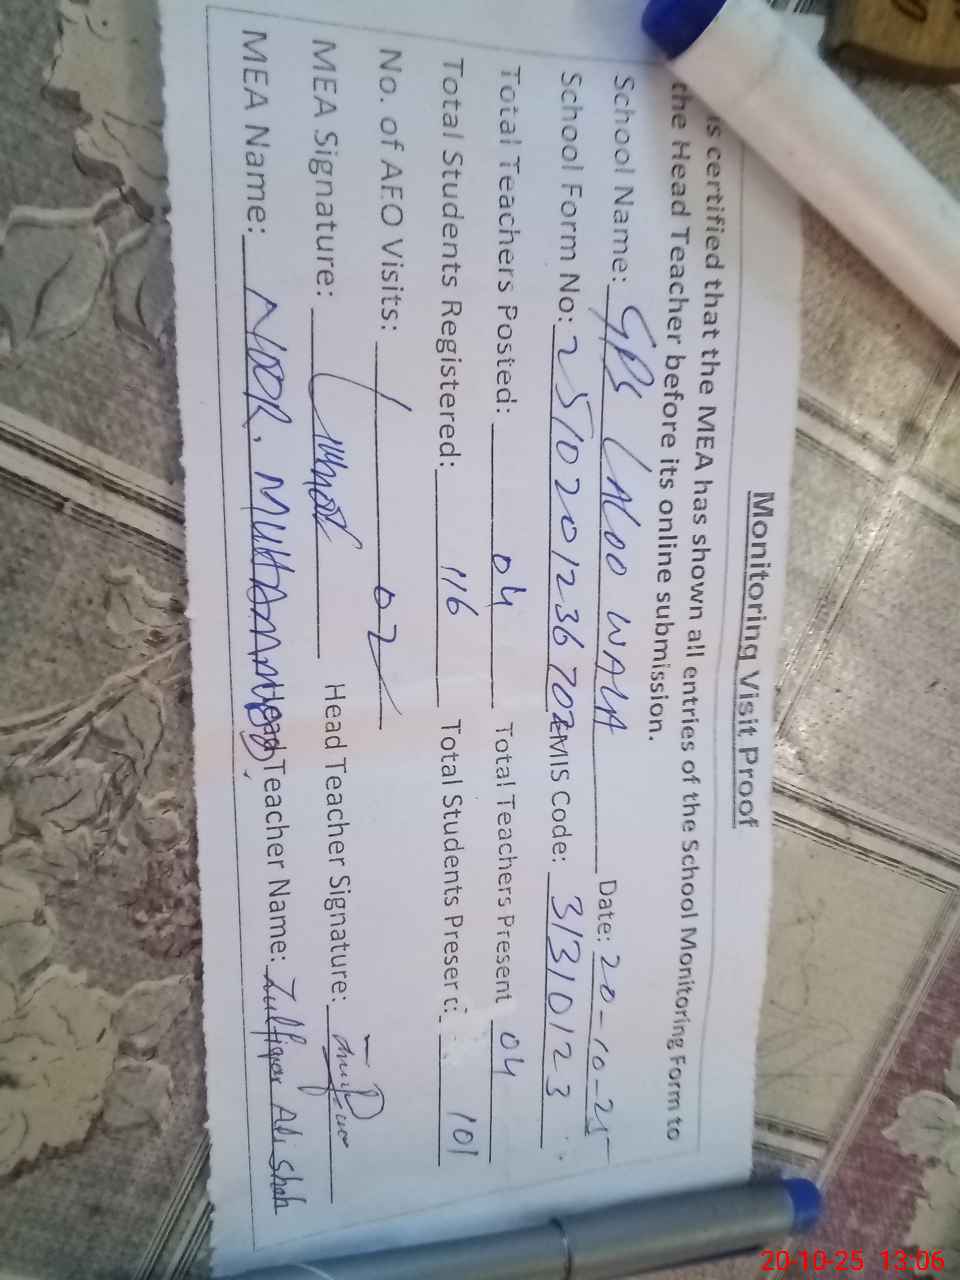 Monitoring Visit Proof
is certified that the MEA has shown all entries of the School Monitoring Form to
the Head Teacher before its online submission.
School Name: GPS LALOO WALA Date: 20-10-25
School Form No: 2510201236702 EMIS Code: 31310123
Total Teachers Posted: 04 Total Teachers Present 04
Total Students Registered: 116 Total Students Present: 101
No. of AEO Visits: 02
MEA Signature: Head Teacher Signature:
MEA Name: NOOR. MUHAMMAD Head Teacher Name: Zulfiqar Ali Shah
20-10-25 13:06